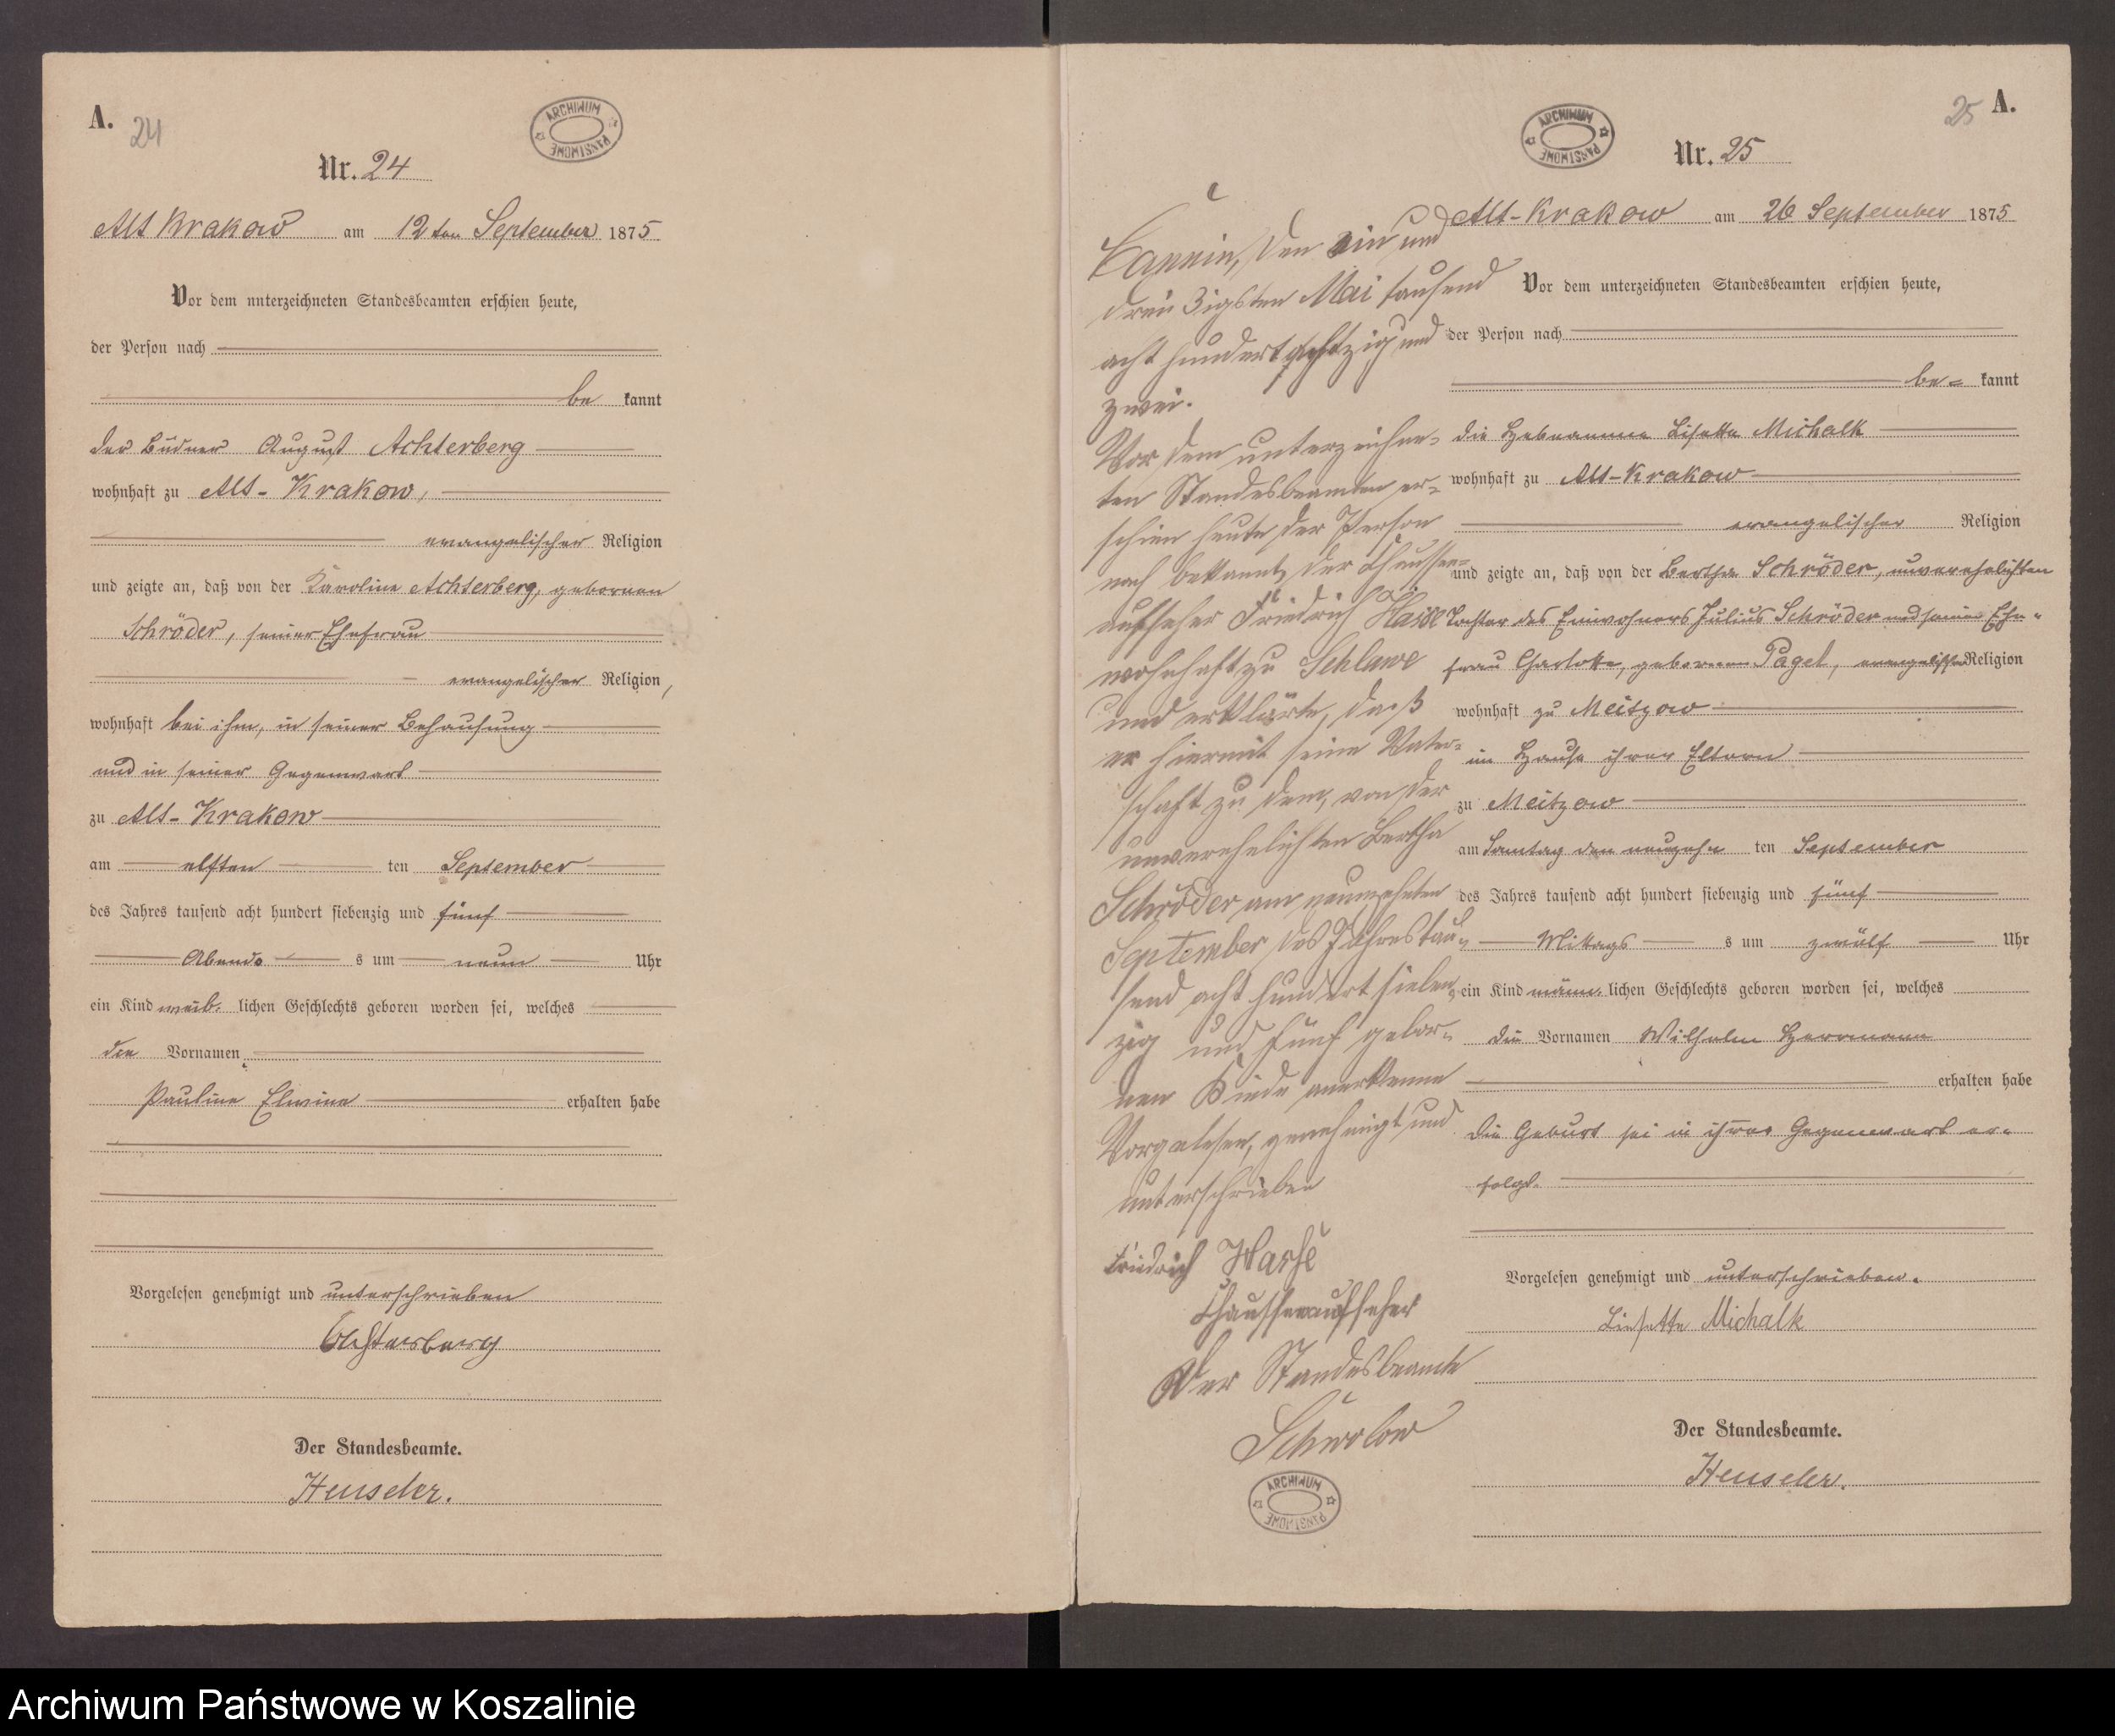 A.
24
ARCHIWUM PAŃSTWOWE
Nr. 24
Alt Krakow am 12 ten September 1875
Vor dem unterzeichneten Standesbeamten erschien heute,
der Person nach
be kannt
der Büdner August Achterberg
wohnhaft zu Alt-Krakow,
evangelischer Religion
und zeigte an, daß von der Karoline Achterberg, gebornen
Schröder, seiner Ehefrau
evangelischer Religion,
wohnhaft bei ihm, in seiner Behausung
und in seiner Gegenwart
zu Alt-Krakow
am elften ten September
des Jahres tausend acht hundert siebenzig und fünf
Abends s um neun Uhr
ein Kind weib lichen Geschlechts geboren worden sei, welches
die Vornamen
Pauline Elwine erhalten habe
Vorgelesen genehmigt und unterschrieben
Achterberg
Der Standesbeamte.
Henseler.
25 A.
ARCHIWUM PAŃSTWOWE
Nr. 25
Alt-Krakow am 26 September 1875
Vor dem unterzeichneten Standesbeamten erschien heute,
der Person nach
be= kannt
die Hebeamme Lisette Michalk
wohnhaft zu Alt-Krakow
evangelischer Religion
und zeigte an, daß von der Bertha Schröder, unverehelichten
Tochter des Einwohners Julius Schröder und seiner Ehe=
frau Charlotte, gebornen Pagel, evangelischer Religion
wohnhaft zu Meitzow
im Hause ihrer Eltern
zu Meitzow
am Sonntag den neunzehn ten September
des Jahres tausend acht hundert siebenzig und fünf
Mittags s um zwölf Uhr
ein Kind männ lichen Geschlechts geboren worden sei, welches
die Vornamen Wilhelm Hermann
erhalten habe
Die Geburt sei in ihrer Gegenwart er=
folgt.
Vorgelesen genehmigt und unterschrieben.
Liesette Michalk
Der Standesbeamte.
Henseler.
Cannin, den ein und
dreißigsten Mai tausend
acht hundert achtzig und
zwei.
Vor dem unterzeichne=
ten Standesbeamten er=
schien heute der Person
nach bekannt, der Chaussee=
aufseher Friedrich Hasse
wohnhaft zu Schlawe
und erklärte, daß
er hiermit seine Vater=
schaft zu dem, von der
unverehelichten Bertha
Schröder am neunzehnten
September des Jahres tau=
send acht hundert sieben=
zig und fünf gebor=
nen Kinde anerkenne
Vorgelesen, genehmigt und
unterschrieben
Friedrich Hasse
Chausseeaufseher
Der Standesbeamte
Schwolow
ARCHIWUM PAŃSTWOWE
Archiwum Państwowe w Koszalinie